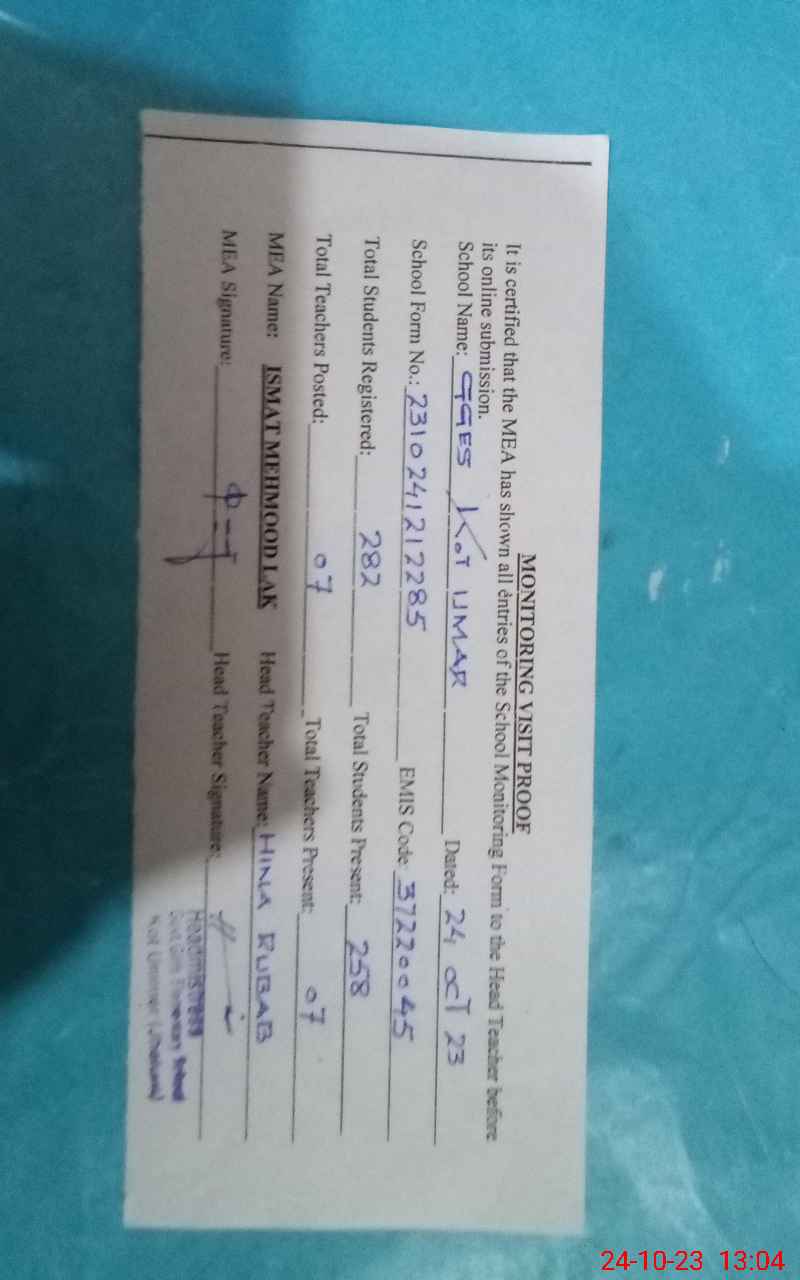 MONITORING VISIT PROOF
It is certified that the MEA has shown all entries of the School Monitoring Form to the Head Teacher before
its online submission.
School Name: GGES Kot UMAR Dated: 24 OCT 23
School Form No.: 2310241212285 EMIS Code 37220045
Total Students Registered: 282 Total Students Present: 258
Total Teachers Posted: 07 Total Teachers Present: 07
MEA Name: ISMAT MEHMOOD LAK Head Teacher Name: HINA RUBAB
MEA Signature: Head Teacher Signature:
Headmistress
Govt. Girls Elementary School
Kot Ummer
24-10-23 13:04